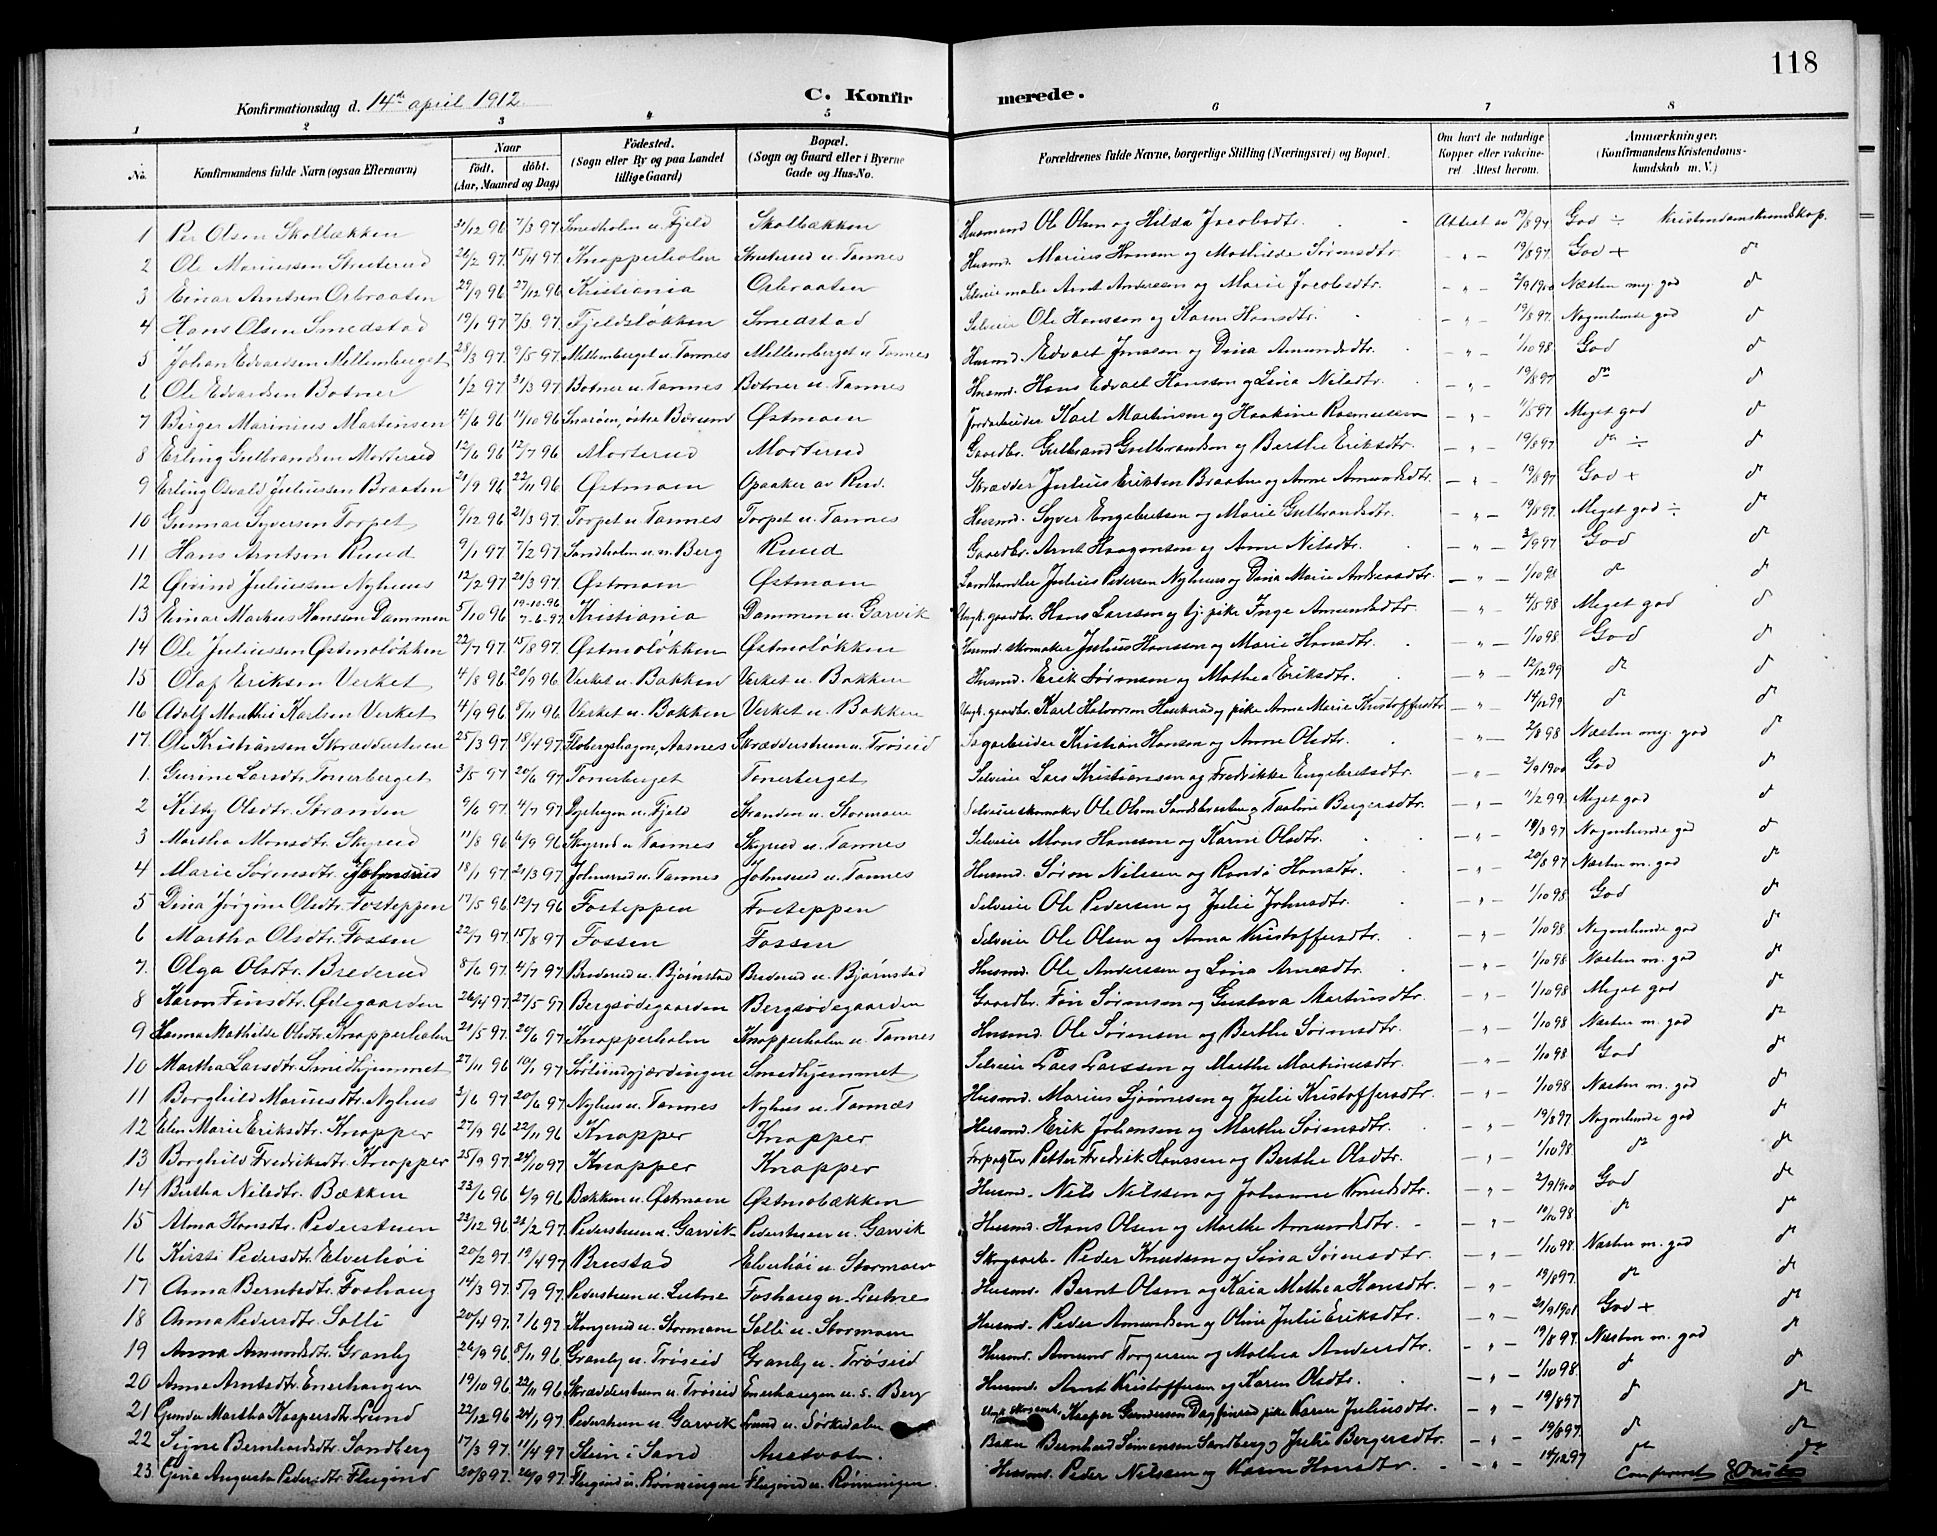 118
Konfirmationsdag d. 14de april 1912. C. Konfirmerede.
1 2 3 4 5 6 7 8
No. Konfirmandens fulde Navn (ogsaa Efternavn) Naar født. døbt. (Aar, Maaned og Dag) Fødested. (Sogn eller By og paa Landet tillige Gaard) Bopæl. (Sogn og Gaard eller i Byerne Gade og Hus-No. Forældrenes fulde Navne, borgerlige Stilling (Næringsvei) og Bopæl. Om havt de naturlige Kopper eller vaccineret Attest herom. Anmærkninger. (Konfirmandens Kristendomskundskab m. V.)
1 Per Olsen Skolbækken 31/12 96 7/3 97. Smedholm u. Fjeld Skolbækken Husmand Ole Olsen og Hilda Jacobsdtr. Attest av 19/8 97 God ÷ Kristendomskundskap.
2 Ole Mariussen Struterud 26/2 97. 15/4 97. Knapperholen Struterud u. Tannes Husmd. Marius Hansen og Mathilde Sørensdtr. - " - 19/8 97. God +
3 Einar Arntsen Orbraaten 29/9 96 27/12 96 Kristiania Orbraaten Selveier Arnt Anderssen og Marie Jacobsdtr. - " - 2/9 1900 Næsten meg. god
4 Hans Olsen Smedstad 19/1 97. 7/3 97. Fjeldsløkken Smedstad Selveier Ole Hansson og Karen Hansdtr. - " - 19/8 97. Nogenlunde god
5 Johan Edvardsen Mellemberget 28/3 97. 9/5 97. Mellemberget u. Tannes Mellemberget u. Tannes Husmd. Edvart Jenssen og Dina Amundsdtr. - " - 1/10 98. God
6 Ole Edvardsen Botner 1/2 97 31/3 97. Botner u. Tannes Botner u. Tannes Husmd. Hans Edvart Hansson og Lina Nilsdtr. - " - 19/8 97.
7 Birger Marinius Martinsen 4/6 96 11/10 96 Snarøen, østre Bærum Østmoen Jordarbeider Karl Martinsen og Haakine Rasmussen - " - 11/5 97. Meget god
8 Erling Gulbrandsen Morterud 12/6 96 12/7 96 Morterud Morterud Gaardbr. Gulbrand Gulbrandsen og Berthe Eriksdtr. - " - 19/8 97 ÷
9 Erling Osvald Juliussen Braaten 21/9 96 22/11 96 Østmoen Opaaker av Rud. Skrædder Julius Eriksen Braaten og Anne Amundsdtr. - " - 19/8 97 God +
10 Gunnar Syversen Torpet 9/12 96 21/3 97. Torpet u. Tannes Torpet u. Tannes Husmd. Syver Engebretsen og Marie Gulbrandsdtr. - " - 19/8 97. Meget god ÷
11 Hans Arntsen Ruud 9/1 97 7/2 97. Sandholm u. n. Berg Ruud Gaardbr. Arnt Haagensen og Anne Nilsdtr. - " - 3/9 97 God
12 Øivind Juliussen Nyhuus 12/2 97. 21/3 97. Østmoen Østmoen Landhandler Julius Pedersen Nyhuus og Dina Marie Andreasdtr. - " - 1/10 98
13 Einar Markus Hansen Dammen 5/10 96 19-10-96 7-6-97 Kristiania Dammen u. Garvik Ungk. gaardbr. Hans Larssen og tj. pike Inge Amundsdtr. - " - 4/5 98 Meget god
14 Ole Juliussen Østmoløkken 22/7 97. 15/8 97. Østmoløkken Østmoløkken Husmd. skomaker Julius Hansson og Marie Hansdtr. - " - 1/10 98 God
15 Olaf Eriksen Verket 4/8 96 20/9 96 Verket u. Bakken Verket u. Bakken Husmd. Erik Sørensen og Mathea Eriksdtr. - " - 12/12 99
16 Adolf Monthei Karlsen Verket 4/9 96 8/11 96 Verket u. Bakken Verket u. Bakken Ungk. gaardbr. Karl Halvorsen og pike Anne Marie Kristoffersdtr. - " - 14/12 99
17. Ole Kristiansen Skrædderstuen 25/3 97. 18/4 97. Flobergshagen, Aasnes Skrædderstuen u. Trøseid Sagarbeider Kristian Hansen og Anne Olsdtr. - " - 2/8 98 Næsten meg. god
1. Gurine Larsdtr. Tonerberget 3/5 97 20/6 97. Tonerberget Tonerberget Selveier Lars Kristiansen og Fredrikke Engebretsdtr. - " - 2/9 1900 God
2 Kitty Olsdtr. Stranden 9/6 97. 4/7 97. u. Fjeld Stranden u. Stormoen Selveier skomaker Ole Olsen og Bergersdtr. - " - 11/2 99. Meget god
3 Martha Monsdtr. Skyrud 11/8 96 6/9 96 Skyrud u. Tannes Skyrud u. Tannes Selveier Mons Hanssen og Karen Olsdtr. - " - 19/8 97 Nogenlunde god
4 Marie Sørensdtr. Johnsrud 18/1 97. 21/3 97. Johnsrud u. Tannes Johnsrud u. Tannes Husmd. Søren Nilssen og Randi Hansdtr. - " - 20/8 97 Næsten m. god
5 Dina Jørgine Olsdtr. Fosteppen 17/5 96 12/7 96 Fosteppen Fosteppen Selveier Ole Pedersen og Julie Johnsdtr. - " - 1/10 98 God
6 Martha Olsdtr. Fossen 22/7 97. 15/8 97. Fossen Fossen Selveier Ole Olsen og Anna Kristoffersdtr. - " - 1/10 98. Nogenlunde god
7. Olga Olsdtr. Brederud 8/6 97. 4/7 97. Brederud u. Bjørnstad Brederud u. Bjørnstad Husmd. Ole Anderssen og Lina Arnesdtr. - " - 1/10 98 Næsten m. god
8 Karen Finsdtr. Ødegaarden 26/4 97. 27/5 97. Bergsødegaarden Bergsødegaarden Gaardbr. Fin Sørensen og Gustava Martinsdtr. - " - 1/10 98 Meget god
9 Hanna Mathilde Olsdtr. Knapperholen 21/5 97. 20/6 97. Knapperholen Knapperholen u. Tannes Husmd. Ole Sørensen og Berthe Sørensdtr. - " - 1/10 98 Næsten m. god
10 Martha Larsdtr. Smedhjemmet 27/11 96 10/1 97. Smedhjemmet Selveier Lars Larssen og Marthe Martinusdtr. - " - 1/10 98 God
11 Borghild Mariusdtr. Nyhus 3/6 97 20/6 97. Nyhus u. Tannes Nyhus u. Tannæs Husmd. Marius og Julie Kristoffersdtr. - " - 1/10 98 Næsten m. god
12 Elen Marie Eriksdtr. Knapper 27/9 96 22/11 96 Knapper Knapper Husmd. Erik Johansen og Marthe Sørensdtr. - " - 19/8 97 Nogenlunde god
13 Borghild Fredriksdtr. Knapper 25/9 97. 24/10 97. Knapper Knapper Forpagter Petter Fredrik Hanssen og Berthe Olsdtr. - " - 1/10 98
14 Bertha Nilsdtr. Bækken 23/6 96 6/9 96 Bækken u. Østmoen Østmobækken Husmd. Nils Nilssen og Johanne Knudsdtr. - " - 2/9 1900 God
15 Alma Hansdtr. Pederstuen 23/12 96 21/2 97. Pederstuen u. Garvik Pederstuen u. Garvik Husmd. Hans Olsen og Marthe Amundsdtr. - " - 10/10 98.
16 Kirsti Pedersdtr. Elverhøi 20/2 97. 19/4 97 Brustad Elverhøi u. Stormoen Skogsarb. Peder Knudsen og Lina Sørensdtr. - " - 1/10 98. Næsten m. god
17 Anna Berntsdtr. Foshaug 14/3 97. 5/9 97. Pederstuen u. Lutne Foshaug u. Lutne Husmd. Bernt Olsen og Kaia Mathea Hansdtr. - " - 19/8 97.
18 Anna Pedersdtr. Solli 20/4 97. 7/6 97. Kongerud u. Stormoen Solli u. Stormoen Husmd. Peder Amundsen og Oline Julie Eriksdtr. - " - 20/9 1901 God +
19 Anna Amundsdtr. Granby 26/9 96. 8/11 96. Granby u. Trøseid Granby u. Trøseid Husmd. Amund Torgersen og Mathea Andersdtr. - " - 19/8 97. Næsten m. god
20 Anne Arntsdtr. Enerhaugen 19/10 96. 22/11 96 Skrædderstuen u. Trøseid Enerhaugen u. s. Berg Husmd. Arnt Kristoffersen og Karen Olsdtr. - " - 1/10 98.
21 Gunda Martha Kaspersdtr. Lund 22/12 96. 24/1 97. Pederstuen u. Garvik Lund u. Sørkedalen Ungk. Kasper Gundersen Dagfinrud pike Karen Juliusdtr. - " - 19/8 97
22 Signe Bernhardsdtr. Sandberg 17/3 97. 11/4 97 Stein i Sand Austvatn. Baker Bernhard Simensen Sandberg og Julie Bergersdtr. - " - 19/8 97.
23. Gina Augusta Pedersdtr. Flugind 20/8 97. 26/9 97. Flugind u. Rønningen Flugind u. Rønningen. Husmd. Peder Nilssen og Karen Hansdtr. - " - 14/12 97